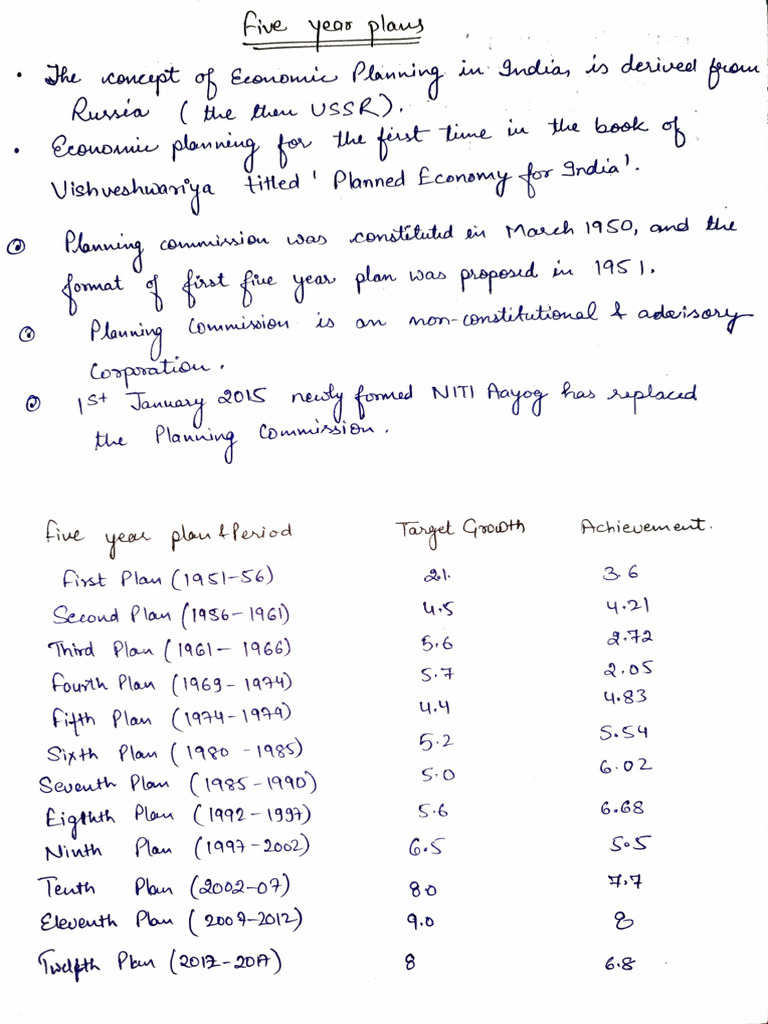 Five year plans
• The concept of Economic Planning in India, is derived from
Russia ( the then USSR).
• Economic planning for the first time in the book of
Vishveshwariya titled ' Planned Economy for India'.
⊙ Planning commission was constituted in March 1950, and the
format of first five year plan was proposed in 1951.
⊙ Planning Commission is an non-constitutional & advisory
Corporation.
⊙ 1st January 2015 newly formed NITI Aayog has replaced
the Planning Commission.
Five year plan & Period Target Growth Achievement.
First Plan (1951-56) 21. 3.6
Second Plan (1956-1961) 4.5 4.21
Third Plan (1961- 1966) 5.6 2.72
Fourth Plan (1969-1974) 5.7 2.05
Fifth Plan (1974-1979) 4.4 4.83
Sixth Plan (1980 -1985) 5.2 5.54
Seventh Plan (1985-1990) 5.0 6.02
Eighth Plan (1992-1997) 5.6 6.68
Ninth Plan (1997-2002) 6.5 5.5
Tenth Plan (2002-07) 80 7.7
Eleventh Plan (2007-2012) 9.0 8
Twelfth Plan (2012-2017) 8 6.8